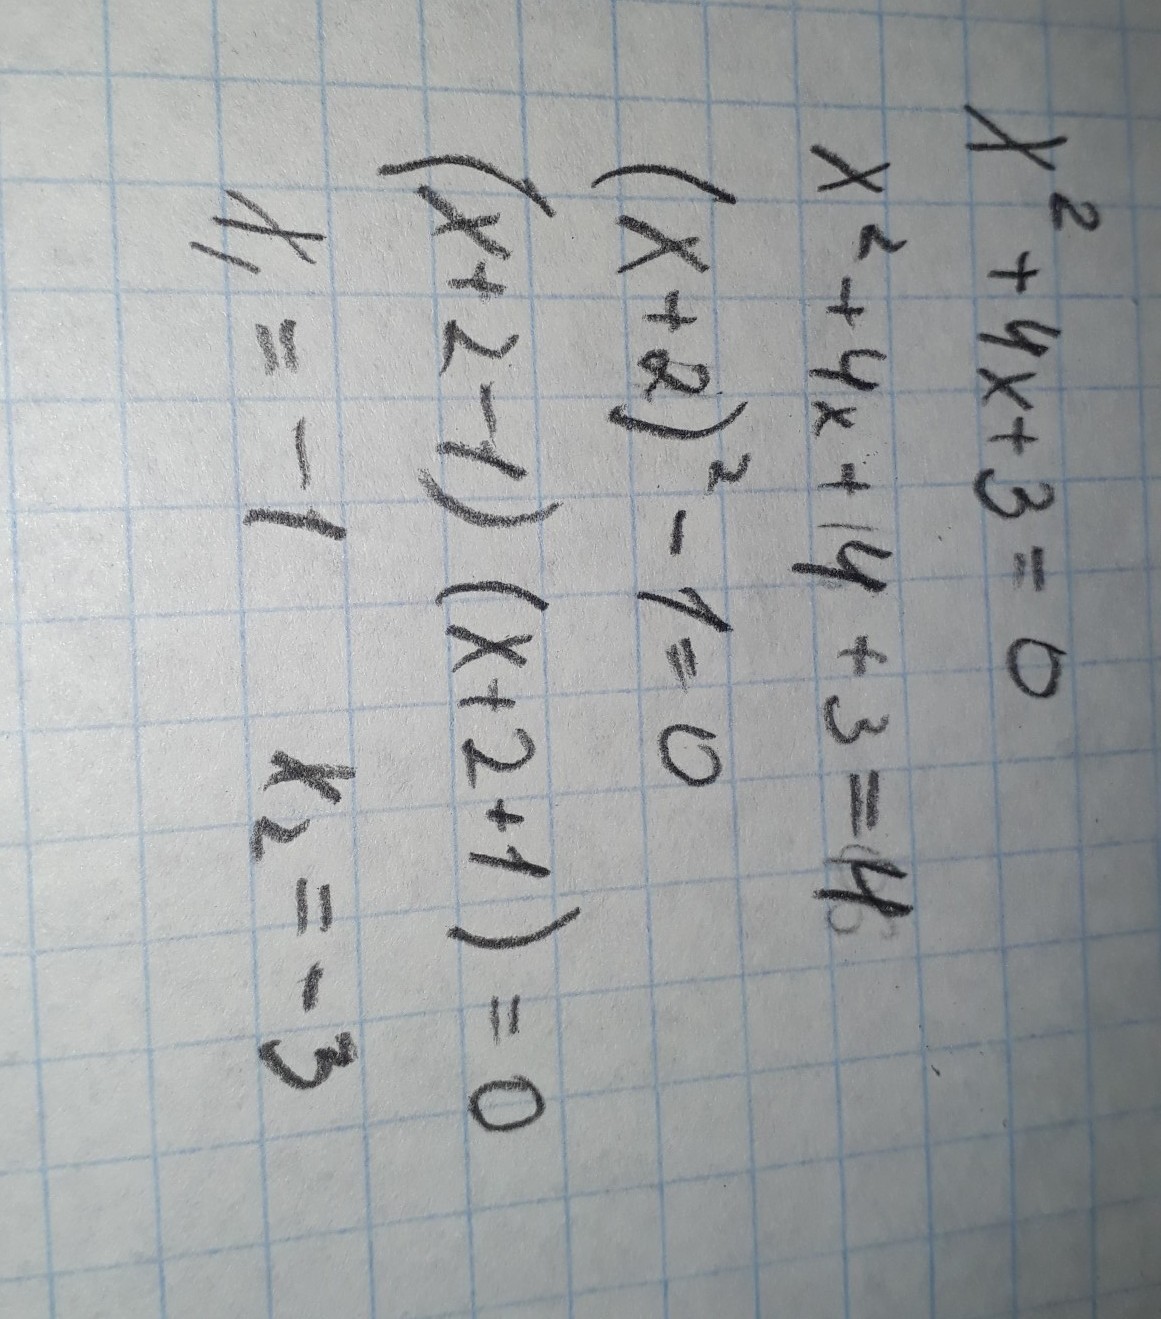 x² + 4x + 3 = 0
x² + 4x + 4 + 3 = 4
(x + 2)² - 1 = 0
(x + 2 - 1) (x + 2 + 1) = 0
x₁ = -1 x₂ = -3